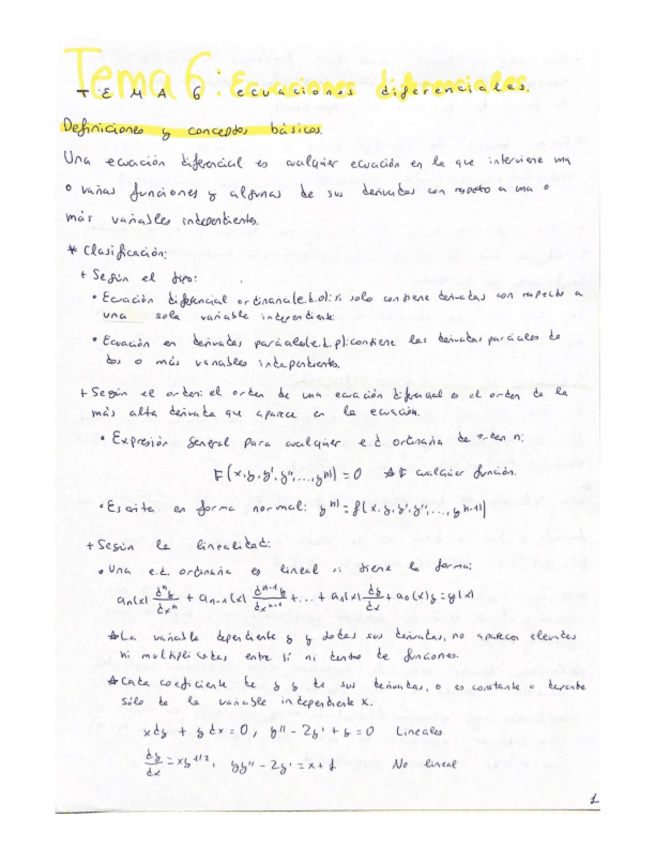 Tema 6: Ecuaciones diferenciales.
TEMA 6 ecuaciones diferenciales.
Definiciones y conceptos básicos.
Una ecuación diferencial es cualquier ecuación en la que interviene una
o varias funciones y algunas de sus derivadas con respeto a una o
más variables independientes.
* Clasificación:
+ Según el tipo:
• Ecuación diferencial ordinaria(e.d.o): si solo contiene derivadas con respecto a
una sola variable independiente
• Ecuación en derivadas parciales(e.d.p): contiene las derivadas parciales de
dos o más variables independientes.
+ Según el orden: el orden de una ecuación diferencial es el orden de la
más alta derivada que aparece en la ecuación.
• Expresión general para cualquier e.d ordinaria de orden n:
F(x,y,y',y'',...,y^(n)) = 0 * F cualquier función.
• Escrita en forma normal: y^(n) = f(x,y,y',y'',...,y^(n-1))
+ Según la linealidad:
• Una e.d. ordinaria es lineal si tiene la forma:
aₙ(x) dⁿy/dxⁿ + aₙ₋₁(x) dⁿ⁻¹y/dxⁿ⁻¹ + ... + a₁(x) dy/dx + a₀(x)y = g(x)
* La variable dependiente y y todas sus derivadas, no aparecen elevadas
ni multiplicadas entre sí ni dentro de funciones.
* Cada coeficiente de y y de sus derivadas, o es constante o depende
sólo de la variable independiente x.
xdy + ydx = 0, y'' - 2y' + y = 0 Lineales
dy/dx = xy^1/2, yy'' - 2y' = x + 1 No lineal
1